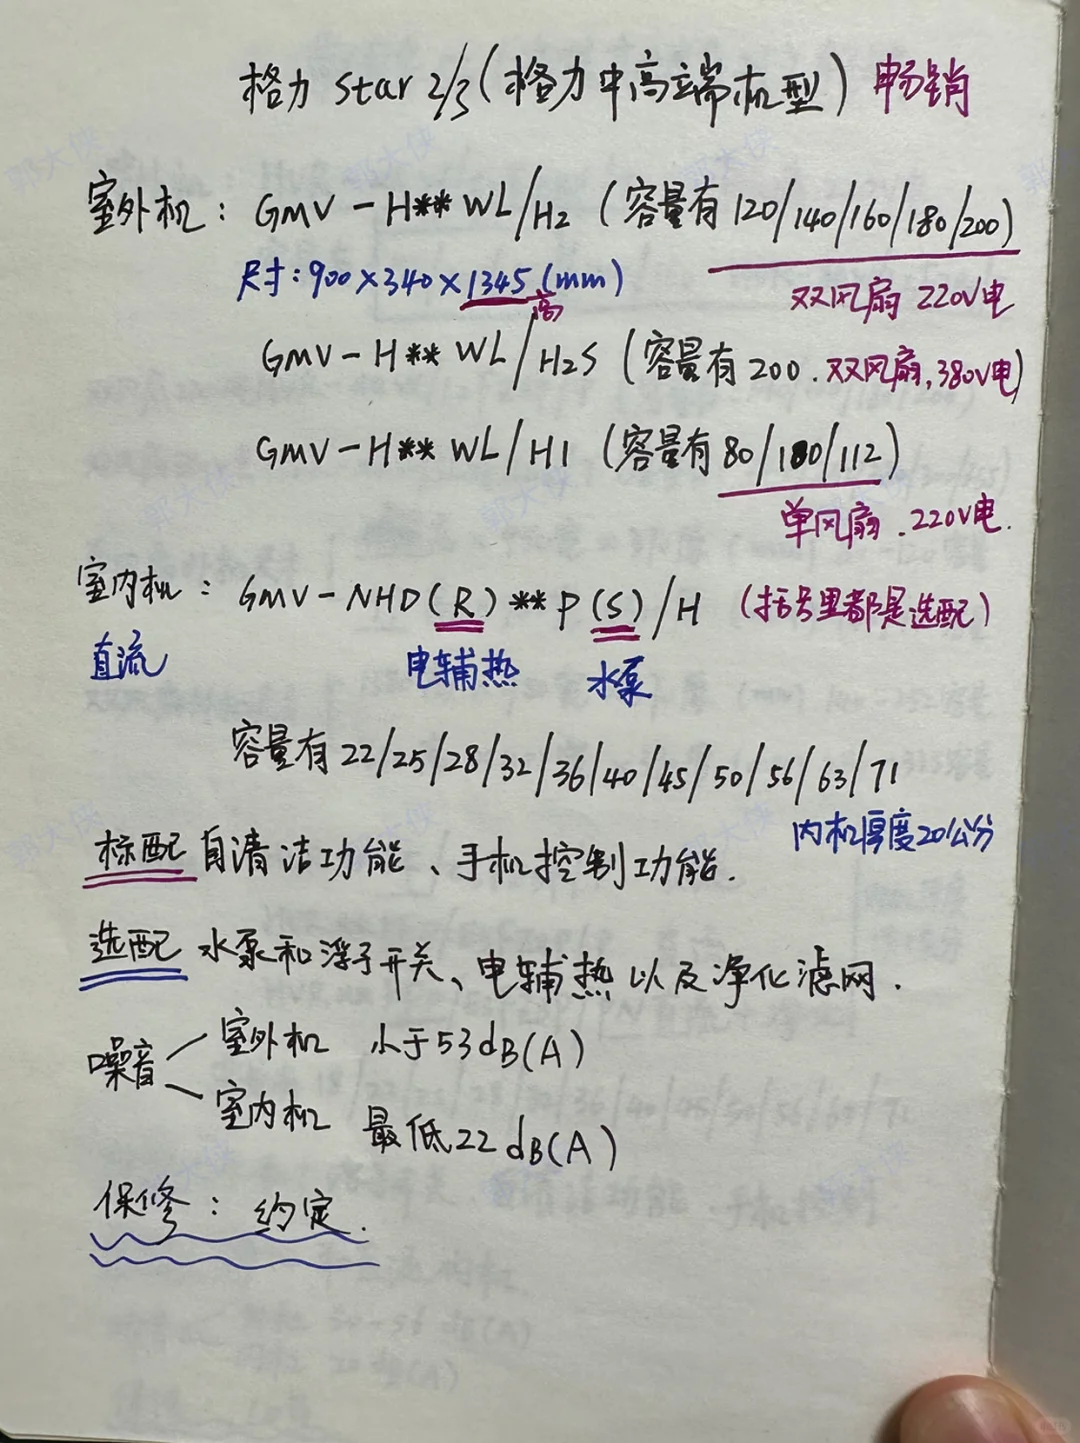 格力 Star 2/3(格力中高端机型) 畅销
室外机: GMV-H**WL/H2 (容量有120/140/160/180/200)
尺寸:900×340×1345(mm)
高
双风扇 220V电
GMV-H** WL/H2S (容量有200.双风扇,380V电)
GMV-H** WL/H1 (容量有80/100/112)
单风扇.220V电.
室内机: GMV-NHD(R)**P(S)/H (括号里都是选配)
直流 电辅热 水泵
容量有22/25/28/32/36/40/45/50/56/63/71
内机厚度20公分
标配 自清洁功能、手机控制功能.
选配 水泵和浮子开关、电辅热以及净化滤网.
噪音
室外机 小于53dB(A)
室内机 最低22dB(A)
保修: 约定.
郭大侠